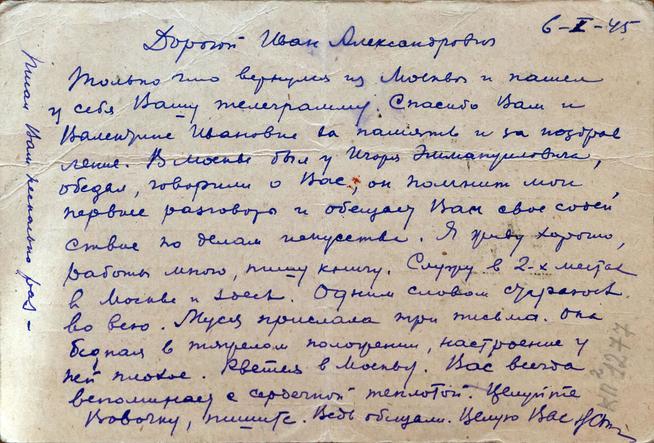 6-X-45
Дорогой Иван Александрович
Только что вернулся из Москвы и нашел
у себя Вашу телеграмму. Спасибо Вам и
Валентине Ивановне за память и за поздрав
ление. В Москве был у Игоря Эммануиловича,
обедал, говорили о Вас, он помнит мои
первые разговоры и обещает Вам свое содей
ствие по делам искусства. Я живу хорошо,
работы много, пишу книгу. Служу в 2-х местах
в Москве и здесь. Одним словом стараюсь
во всю. Муся прислала три письма. Она
бедная в тяжелом положении, настроение у
ней плохое. Рвется в Москву. Вас всегда
вспоминает с сердечной теплотой. Целуйте
Вовочку, пишите. Ведь обещали. Целую Вас
Писал Вам несколько раз –
КП 1277